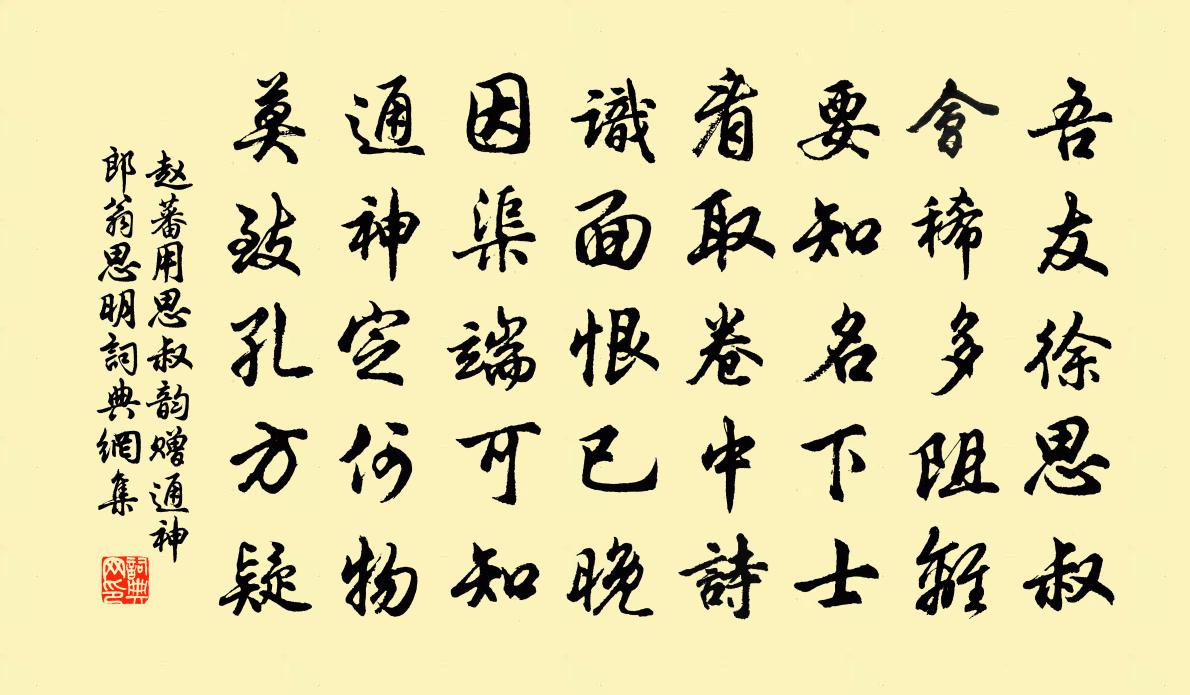 吾友徐思叔
會稀多阻難
要知名下士
看取卷中詩
識面恨已晚
因渠端可知
通神定何物
莫致孔方疑
赵蕃用思叔韵赠通神
郎翁思明詞典網集
詞典網印